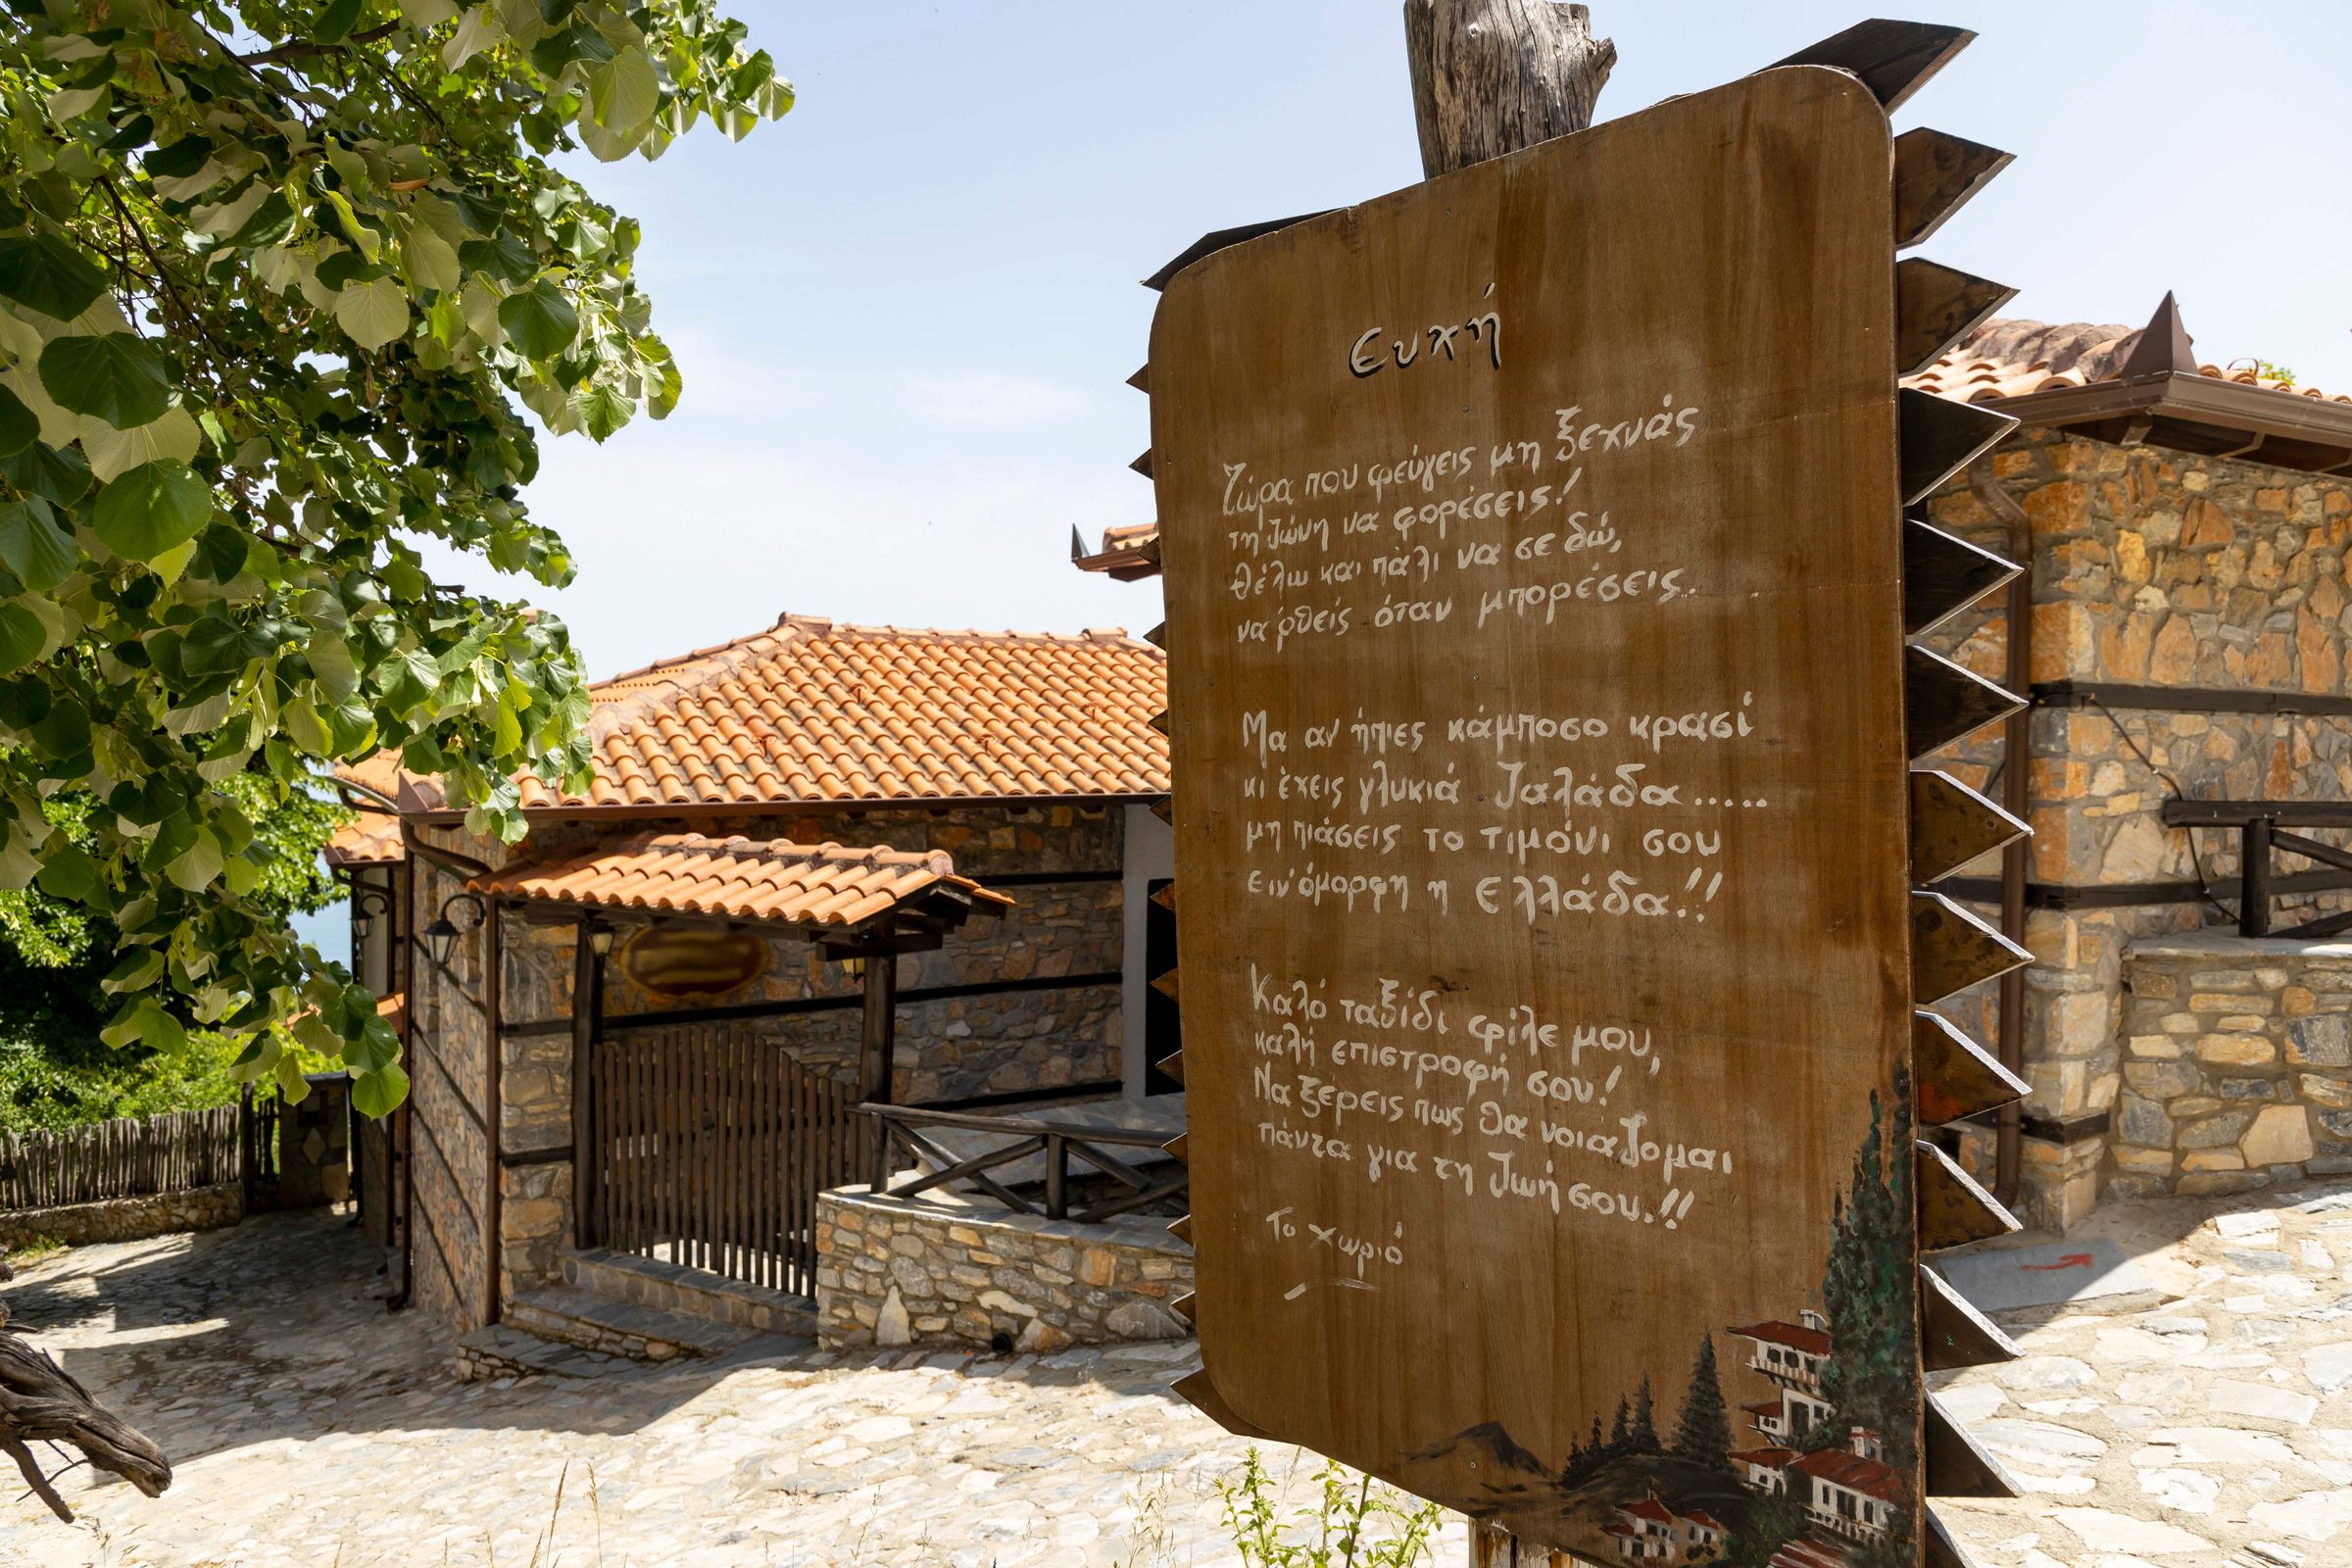 Ευχή
Τώρα που φεύγεις μη ξεχνάς
τη Ζώνη να φορέσεις!
θέλω και πάλι να σε δώ,
να'ρθείς όταν μπορέσεις..
Μα αν ήπιες κάμποσο κρασί
κι έχεις γλυκιά Ζαλάδα.....
μη πιάσεις το τιμόνι σου
ειν'όμορφη η Ελλάδα.!!
Καλό ταξίδι φίλε μου,
καλή επιστροφή σου!
Να ξέρεις πως θα νοιαΖομαι
πάντα για τη Ζωή σου.!!
Το χωριό